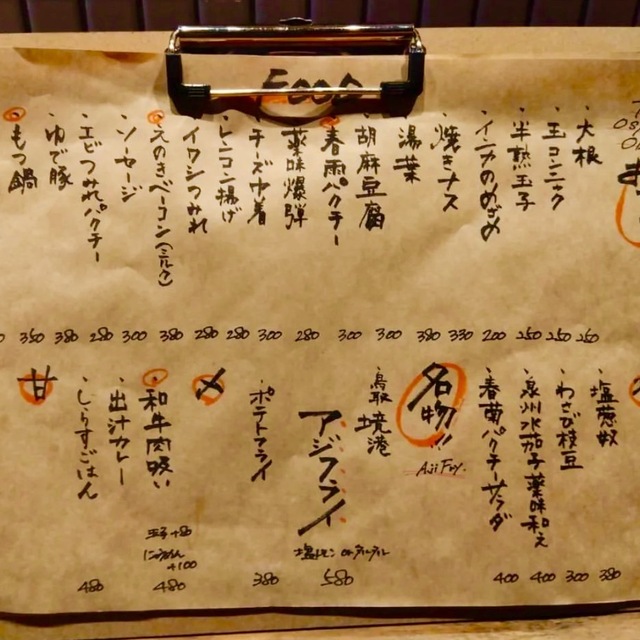 Food
・大根 250
・玉コンニャク 250
・半熟玉子 250
・イカのめざめ 200
・焼きナス 330
・湯葉 380
・胡麻豆腐 300
・春雨パクチー 300
・薬味爆弾 280
・チーズ巾着 300
・レンコン揚げ 280
・イワシつみれ 280
・えのきベーコン(ミルク) 380
・ソーセージ 300
・エビつみれパクチー 280
・ゆで豚 380
・もつ鍋 350
・塩葱奴 380
・わさび枝豆 300
・泉州水茄子薬味和え 400
・春菊パクチーサラダ 400
名物!!
Aji Fry.
・鳥取 境港
アジフライ
塩レモン or タルタル
580
・ポテトフライ 380
〆
・和牛肉吸い
玉子+80
にゅうめん
+100
480
・出汁カレー
・しらすごはん 480
甘